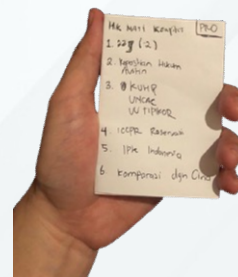 Hk Anti Korupsi PRO
1. 22g (2)
2. Kepastian Hukum
Austin
3. KUHP
UNCAC
UU TIPIKOR
4. ICCPR
5. IPK Indonesia
6. Komparasi dgn